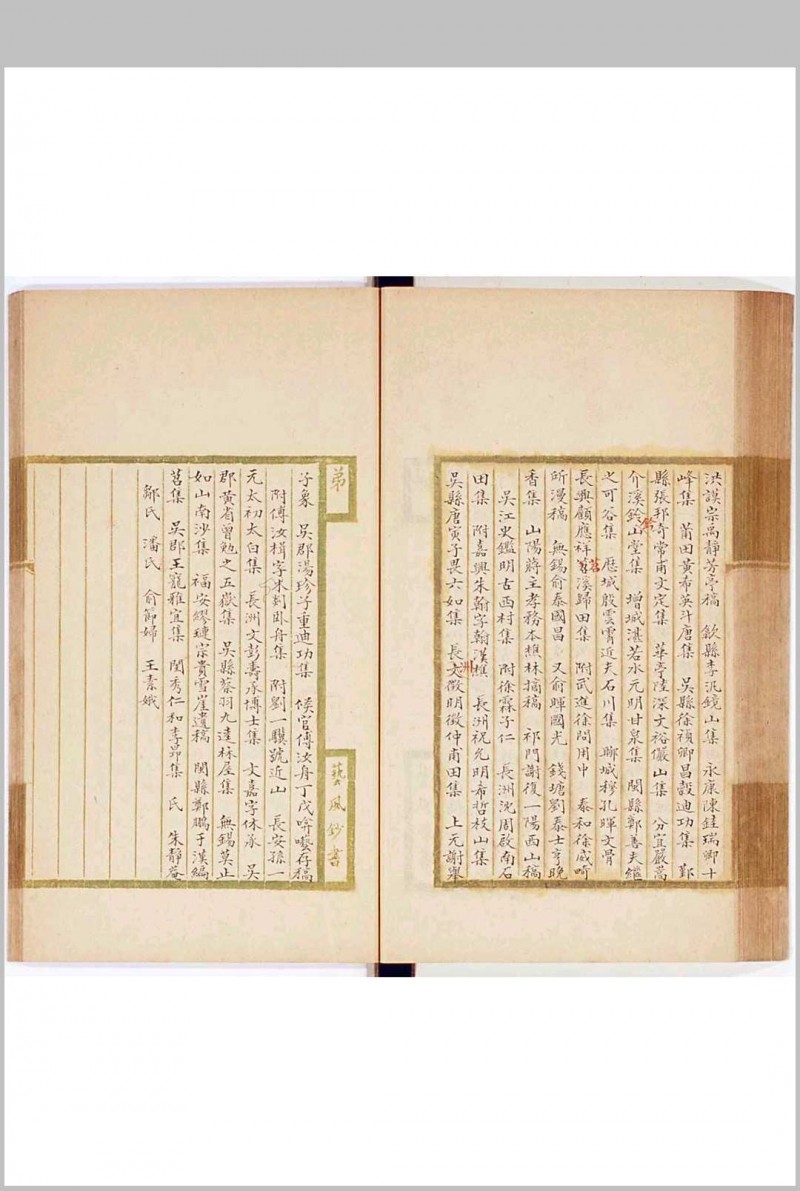 洪謨宗禹靜芳亭稿　歙縣李汎鏡山集　永康陳銈瑞卿十
峰集　莆田黃希英斗唐集　吳縣徐禎卿昌穀迪功集　鄞
縣張邦奇常甫文定集　華亭陸深文裕儼山集　分宜嚴嵩
介溪鈐山堂集　增城湛若水元明甘泉集　閩縣鄭善夫繼
之可谷集　歷城殷雲霄近夫石川集　聊城穆孔暉文骨
長興顧應祥箬溪歸田集　附武進徐問用中　泰和徐威
所漫稿　無錫俞泰國昌　又俞暉國光　錢塘劉泰士亨晚
香集　山陽蔣主孝務本樵林摘稿　祁門謝復一陽西山稿
吳江史鑑明古西村集　附徐霖子仁　長洲沈周啟南石
田集　附嘉興朱翰字翰漢樵　長洲祝允明希哲枝山集
吳縣唐寅子畏六如集　長洲文徵明徵仲甫田集　上元謝舉
弟
子象　吳郡湯珍子重迪功集　侯官傅汝舟丁戊
附傅汝楫字木剡臥舟集　附劉一驥號近山　長安孫一
元太初太白集　長洲文彭壽承博士集　文嘉字休承　吳
郡黃省曾勉之五嶽集　吳縣蔡羽九逵林屋集　無錫莫止
如山南沙集　福安繆璉宗貴雪崖遺稿　閩縣鄭鵬于漢編
苕集　吳郡王寵雅宜集　閨秀仁和李昂集　氏　朱靜菴
鄒氏　潘氏　俞節婦　王素娥
藝風鈔書